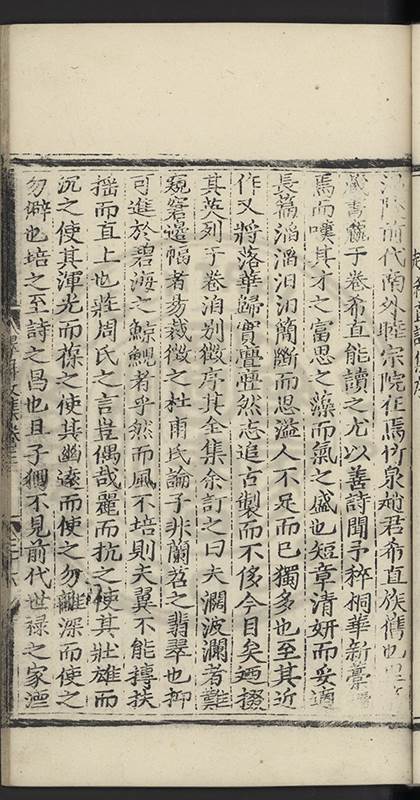 前代南外睦宗院在焉竹泉趙君希直族儁也
藏書餘子卷希直能讀之尤以善詩聞予稡桐華新藁
焉而嘆其才之富思之藻而氣之盛也短章清妍而妥適
長篇滔滔汨汨簡斷而思溢人不足而已獨多也至其近
作又將落華歸實亹亹然志追古製而不侈今目矣廼掇
其英列于卷洎別微序其全集余訂之曰夫濶波瀾者難
窺窘邊幅者易裁微之杜甫氏論子非蘭苕之翡翠也抑
可進於碧海之鯨鯢者乎然而風不培則夫翼不能摶扶
搖而直上也莊周氏之言豈偶哉麗而抗之使其壯雄而
沉之使其渾光而葆之使其幽遠而使之勿離深而使之
勿僻也培之至詩之昌也且子獨不見前代世祿之家湮